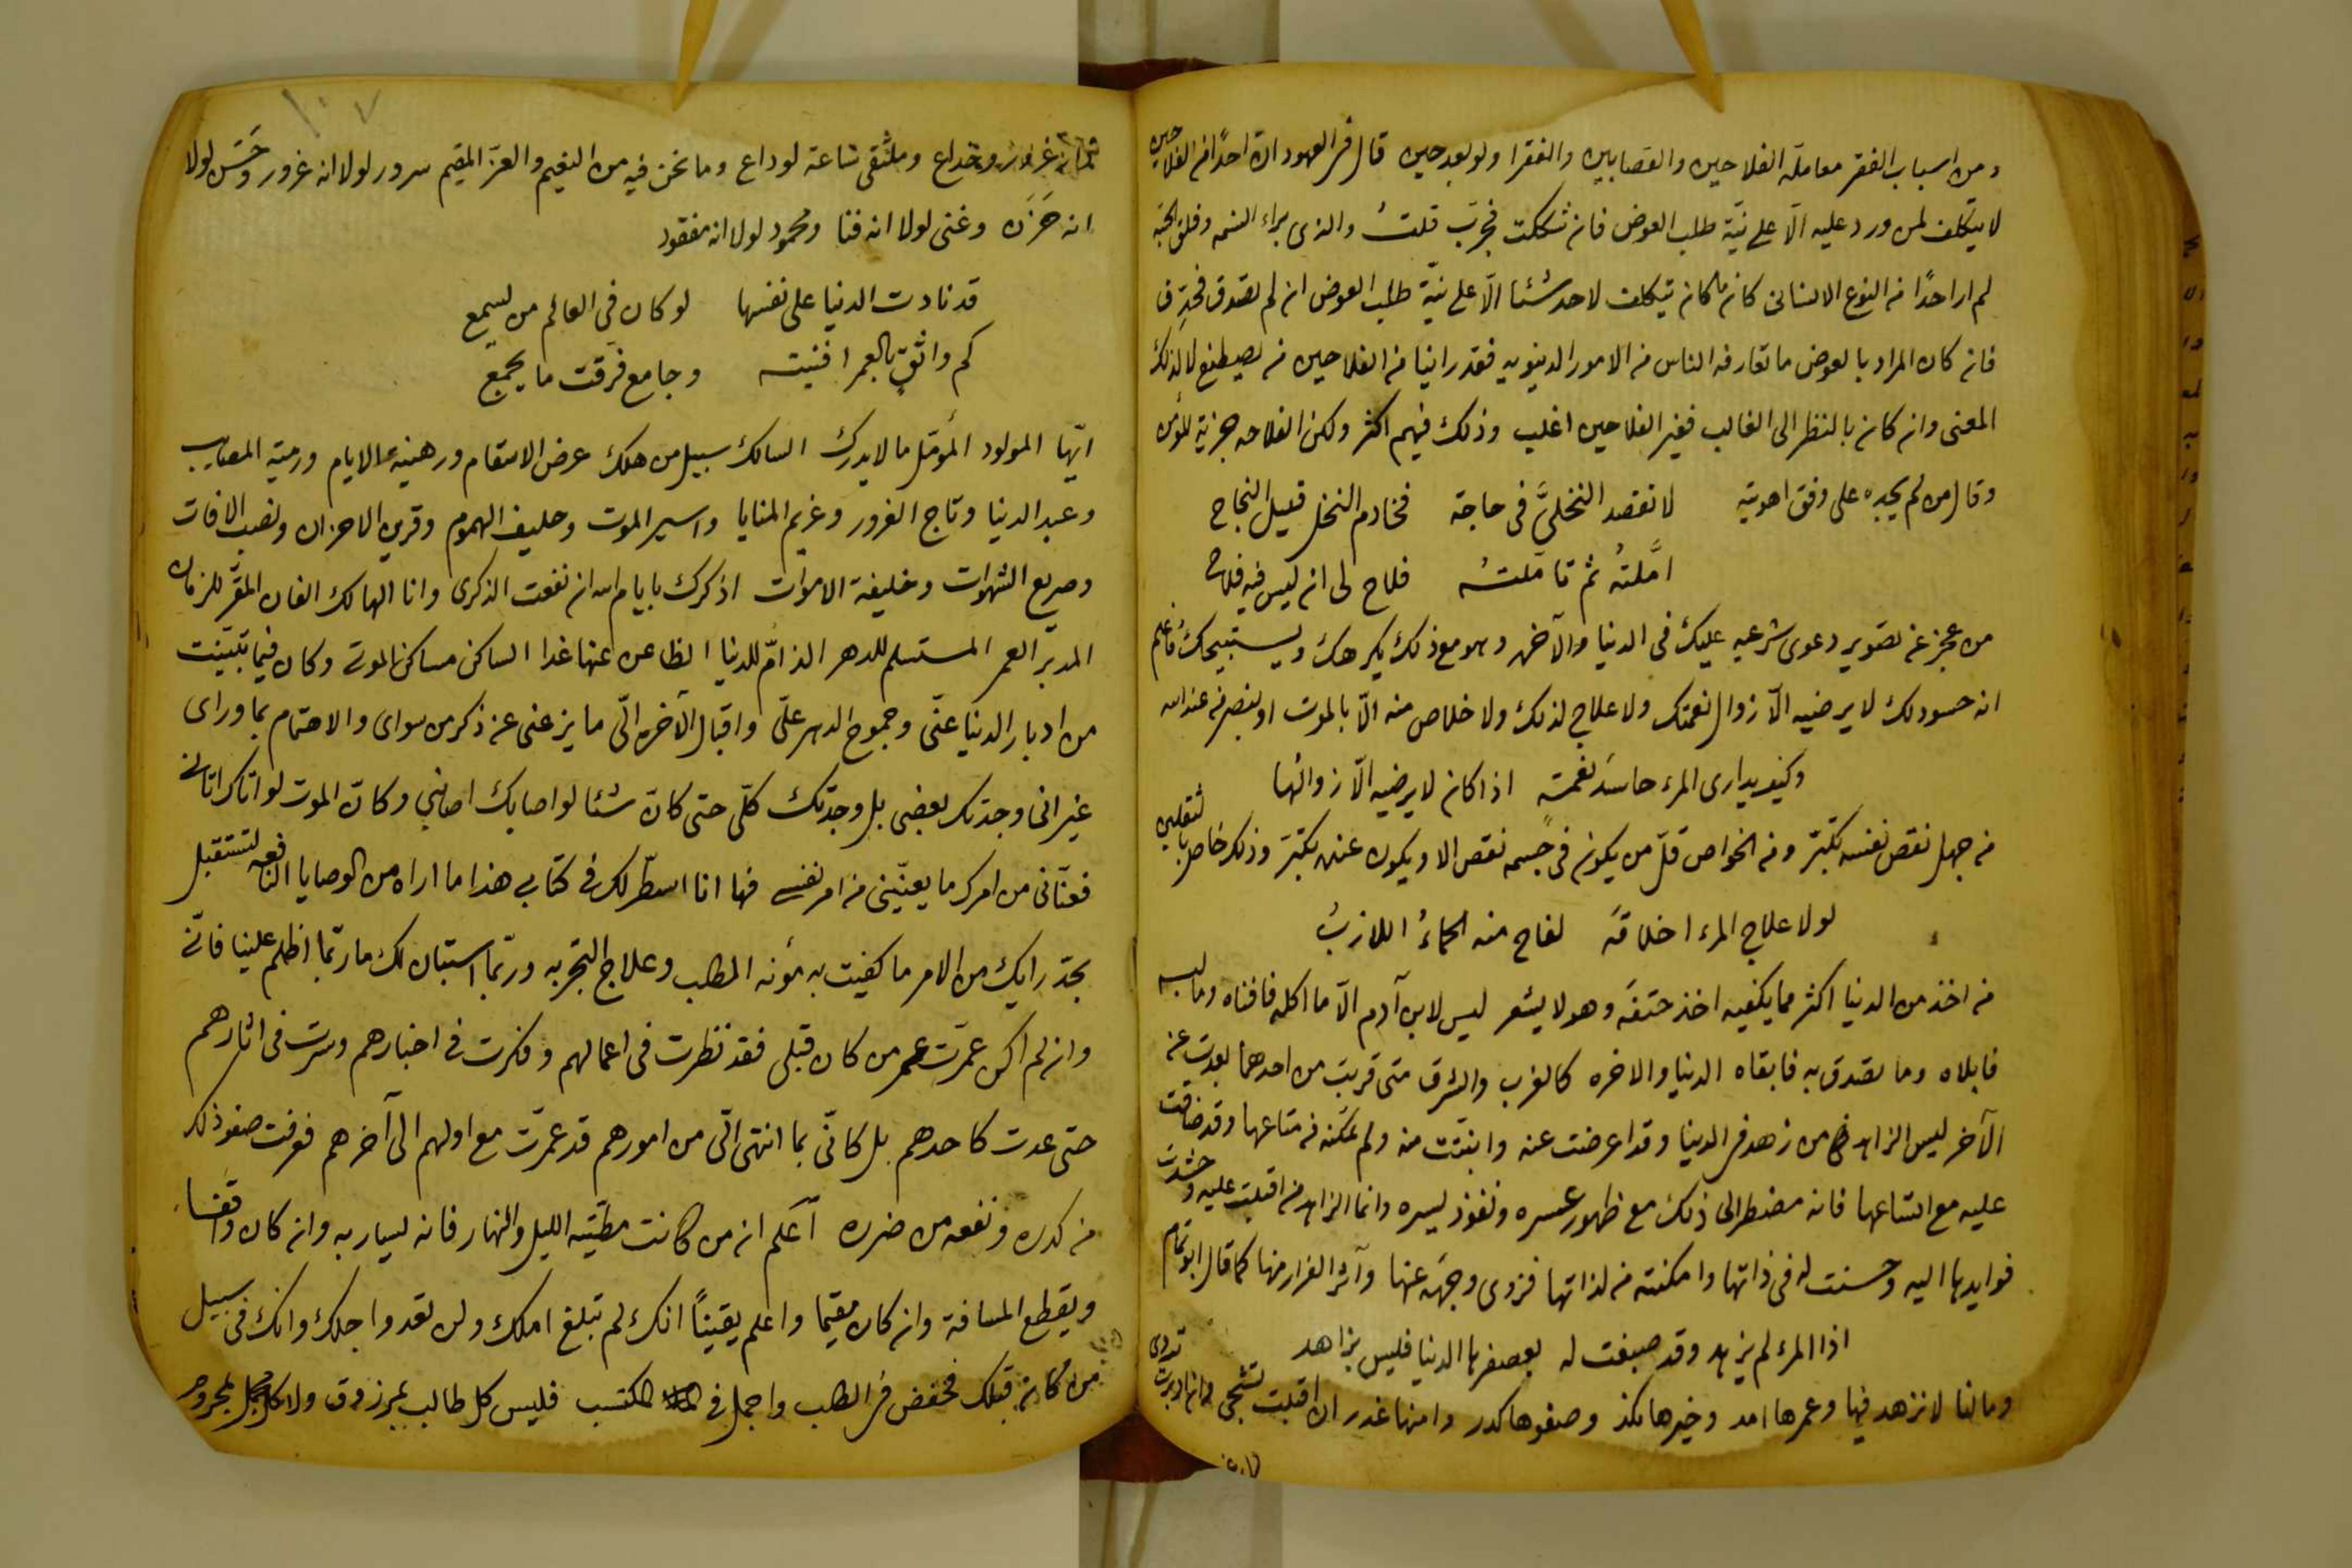 ومن اسباب الفقر معاملة الفلاحين والقصابين والفقرا ولو بعد حين قال في العهود ان احدًا من الفلاحين
لا يتكلف لمن ورد عليه الّا على نيّة طلب العوض فان شككت فجرّب قلتُ والذي براء النسمه وفلق الحبّه
لم ار احدًا من النوع الانساني كان ما كان يتكلف لاحد شئا الّا على نيّة طلب العوض ان لم تصدق فجرّب
فان كان المراد بالعوض ما تعارفه الناس من الامور الدنيويه فقد راينا من الفلاحين من يصطنع لا لذلك
المعنى وان كان بالنظر الى الغالب فغير الفلاحين اغلب وذلك فيهم اكثر ولكن الفلاحه جزية المؤمن
وقال من لم يجده على وفق اهويته لا تقصد النخليَّ في حاجة فخادم النخل قليل النجاح
امَّلتهُ ثم تاملتهُ فلاح لي ان ليس فيه فلاح
من عجز عن تصوير دعوى شرعيه عليك في الدنيا والآخره وهو مع ذلك يكرهك ويستبيحك فاعلم
انه حسود لك لا يرضيه الّا زوال نعمتك ولا علاج لذلك ولا خلاص منه الّا بالموت او بنصر من عند الله
وكيف يدارى المرء حاسد نعمة اذا كان لا يرضيه الّا زوالها
من جهل نقص نفسه تكبّر ومن الخواص قلّ من يكون في جسمه نقص الا ويكون عنده تكبّر وذلك خاص بالثقلين
لولا علاج المرء اخلاقه لفاح منه الحماءُ اللازبُ
من اخذ من الدنيا اكثر مما يكفيه اخذ حتفه وهو لا يشعر ليس لابن آدم الّا ما اكله فافناه وما لبسه
فابلاه وما تصدق به فابقاه الدنيا والاخره كالغرب والشرق متى قربت من احدهما بعدت عن
الآخر ليس الزاهد من زهد في الدنيا وقد اعرضت عنه وانبتّت منه ولم تمكّنه من متاعها وقد ضاقت
عليه مع اتساعها فانه مضطر الى ذلك مع ظهور عسره ونفوذ يسره وانما الزاهد من اقبلت عليه وحشدت
فوايدها اليه وحسنت له في ذاتها وامكنته من لذاتها فزوى وجهه عنها وآثر الفرار منها كما قال ابو تمام
اذا المرء لم يزهد وقد صبغت له بعصفرها الدنيا فليس بزاهد
وما لنا لا نزهد فيها وعمرها امد وخيرها نكد وصفوها كدر وامنها غدر ان اقبلت تشجي وان ادبرت تردي
١٠٧
وخداع وملتقى ساعة لوداع وما نحن فيه من النعيم والعزّ المقيم سرور لولا انه غرور وحَسَن لولا
انه حَزَن وغنى لولا انه فنا ومحمود لولا انه مفقود
قد نادت الدنيا على نفسها لو كان في العالم من يسمع
كم واثقٍ بالعمر افنيته وجامع فرقت ما يجمع
ايّها المولود المؤمّل ما لا يدرك السالك سبيل من هلك عرض الاسقام ورهينة الايام ورمية المصايب
وعبد الدنيا وتاجر الغرور وغريم المنايا واسير الموت وحليف الهموم وقرين الاحزان ونصب الافات
وصريع الشهوات وخليفة الاموات اذكرك بايام الله ان نفعت الذكرى وانا الهالك الفان المقرّ للزمان
المدبر العمر المستسلم للدهر الذامّ للدنيا الظاعن عنها غدا الساكن مساكن الموتى وكان فيما تبيّنت
من ادبار الدنيا عنّي وجموح الدهر عليّ واقبال الآخره اليّ ما يزعني عن ذكر من سواى والاهتمام بما وراى
غير اني وجدتك بعضي بل وجدتك كلّي حتى كانّ شئا لو اصابك اصابني وكانّ الموت لو اتاك اتاني
فعنّاني من امرك ما يعنيني من امر نفسي فها انا اسطّر لك في كتابي هذا ما اراه من الوصايا النافعه لتستقبل
بجدّ رايك من الامر ما كفيت به مؤنه الطلب وعلاج التجربه وربّما استبان لك ما ربّما اظلم علينا فانّي
وان لم اكن عمّرت عمر من كان قبلي فقد نظرت في اعمالهم وفكرت في اخبارهم وسرت في اثارهم
حتى عدت كاحدهم بل كانّي بما انتهى اليّ من امورهم قد عمّرت مع اولهم الى آخرهم فعرفت صفو ذلك
من كدره ونفعه من ضرره اعلم ان من كانت مطيّته الليل والنهار فانه يسار به وان كان واقفا
ويقطع المسافة وان كان مقيما واعلم يقينًا انك لم تبلغ املك ولن تعدوا اجلك وانك في سبيل
من كان قبلك فخفض في الطلب واجمل في المكتسب فليس كل طالب بمرزوق ولا كل مجمل بمحروم